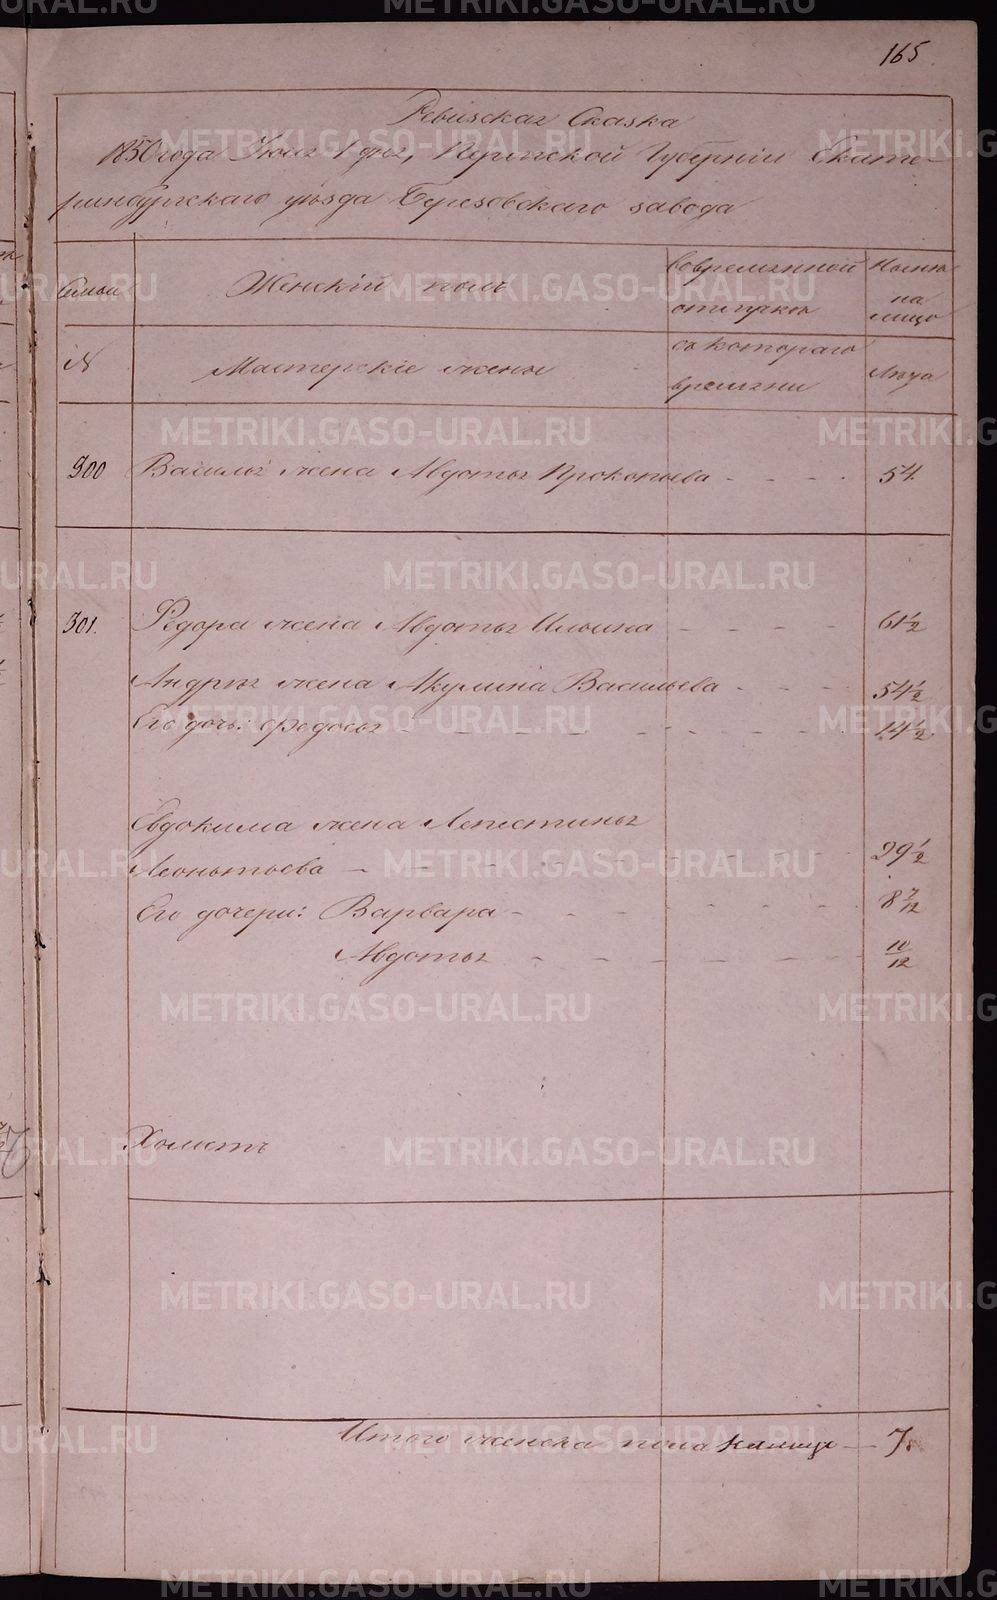 165
Ревизская Сказка
1850 года Июня 1 дня, Пермской Губернии Екате-
ринбургскаго уѣзда Березовскаго завода
Семьи
Женскій полъ
Во временной
отлучкѣ
Нынѣ
на
лицо
№
Мастерскіе жены
съ котораго
времени
Лѣта
300 Василья жена Авдотья Прокопьева - - - - 54.
301. Федора жена Авдотья Ильина - - - - 61 1/2
Андрея жена Акулина Васильева - - - 54 1/2
Его дочь: Федосья - - - - - - - - 14 1/2
Евдокима жена
Леонтьева - - - - - - - - 29 1/2
Его дочери: Варвара - - - - - - 8 7/12
Авдотья - - - - - - 10/12
Холостъ
Итого женска пола налицо — 7.
METRIKI.GASO-URAL.RU